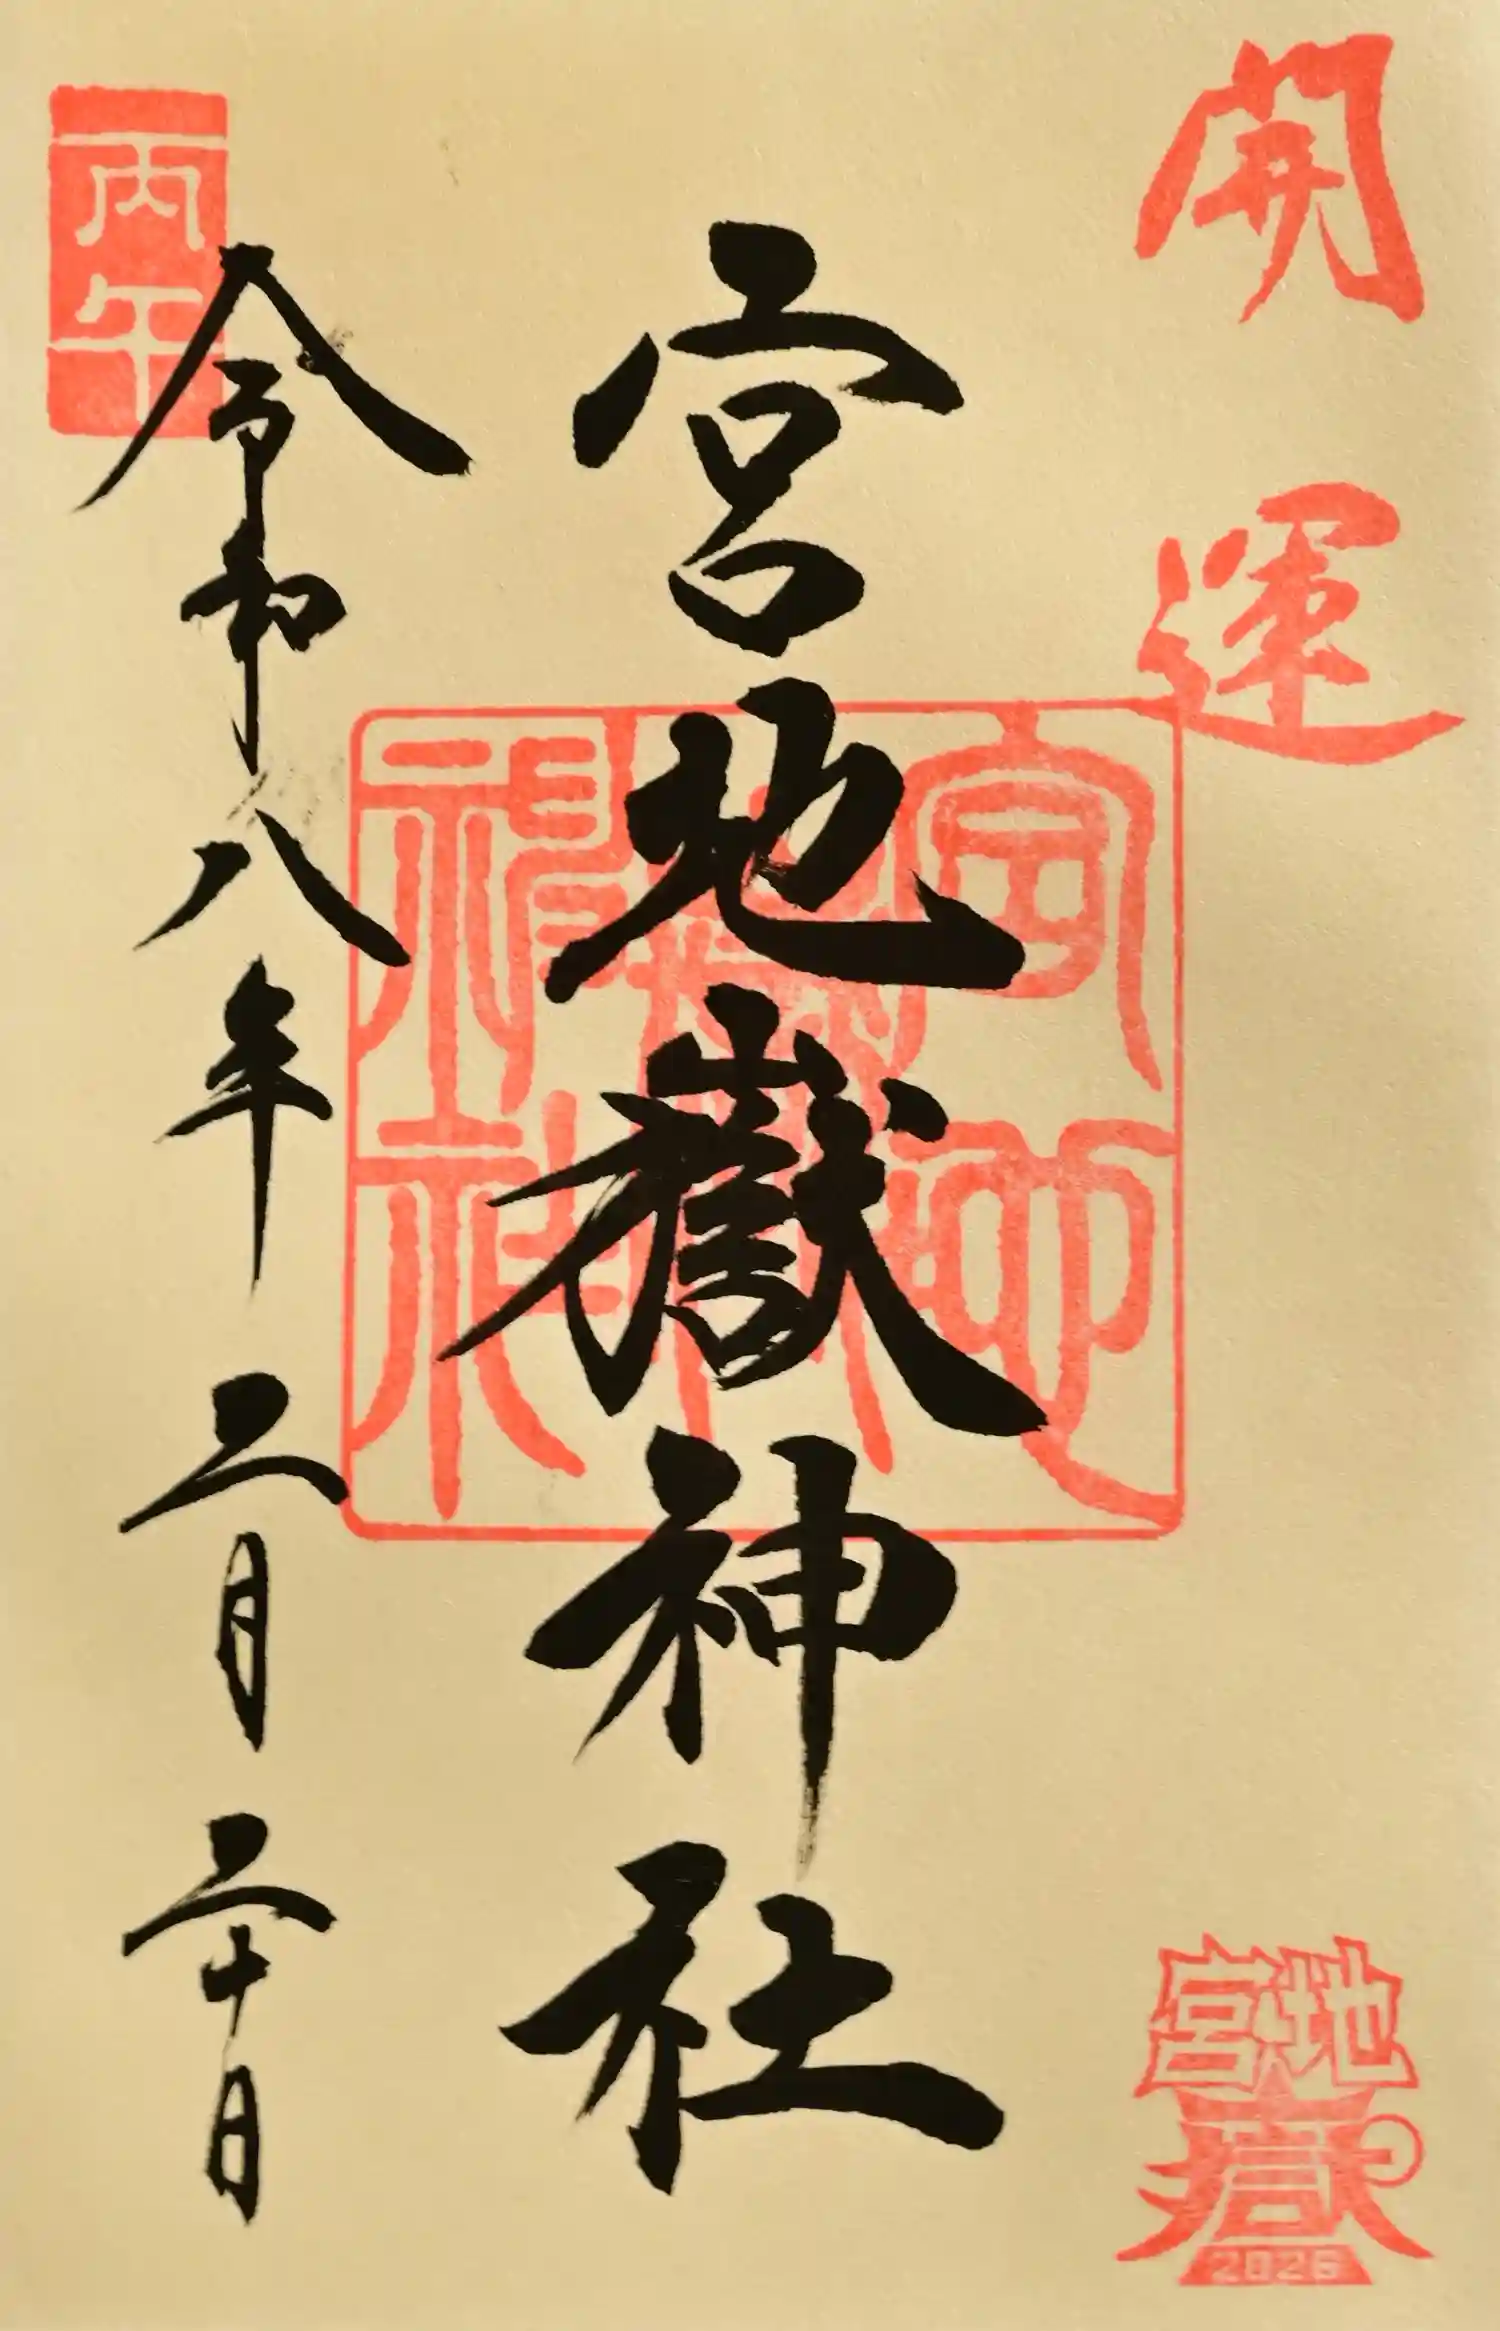 開運
宮地
嶽
2026
宮地嶽神社
丙午
令和八年二月二十日